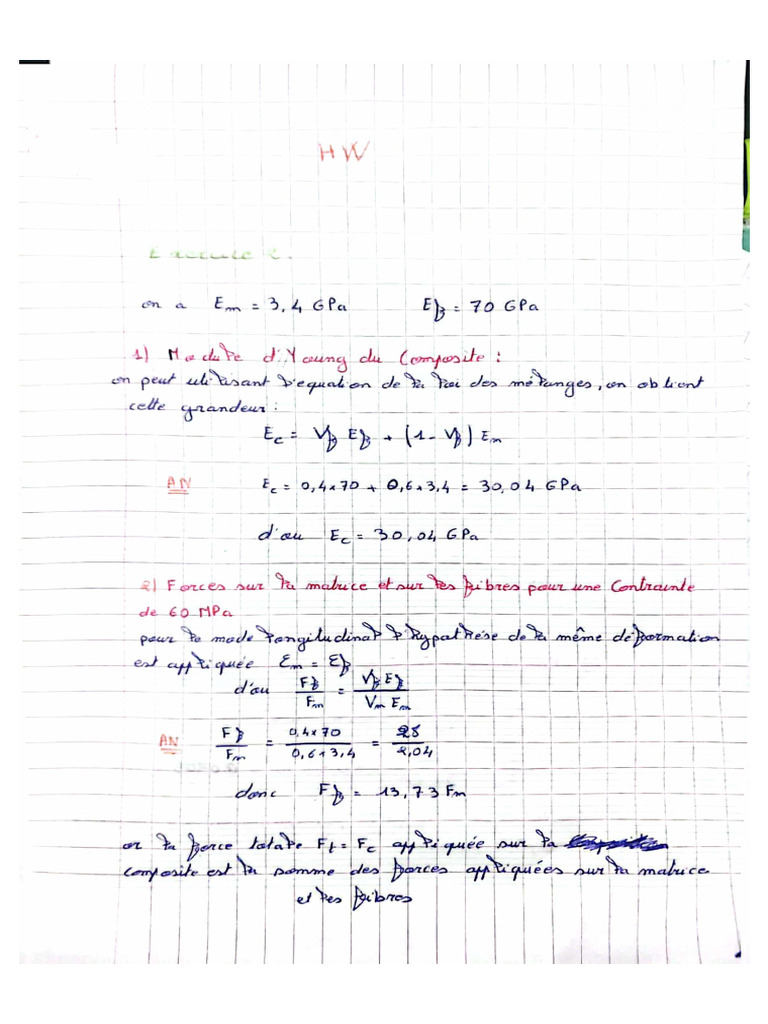 HW
Exercice 2.
on a Em = 3,4 GPa Ef = 70 GPa
1) Module d'Young du Composite :
on peut utilisant l'equation de la loi des mélanges, on obtient
cette grandeur :
Ec = Vf Ef + (1 - Vf) Em
AN Ec = 0,4 x 70 + 0,6 x 3,4 = 30,04 GPa
d'ou Ec = 30,04 GPa
2) Forces sur la matrice et sur les fibres pour une Contrainte
de 60 MPa
pour le mode longitudinal l'hypothèse de la même déformation
est appliquée Ɛm = Ɛf
d'où Ff/Fm = Vf Ef / Vm Em
AN Ff/Fm = 0,4 x 70 / 0,6 x 3,4 = 28 / 2,04
donc Ff = 13,73 Fm
or la force totale Ft = Fc appliquée sur la
composite est la somme des forces appliquées sur la matrice
et les fibres